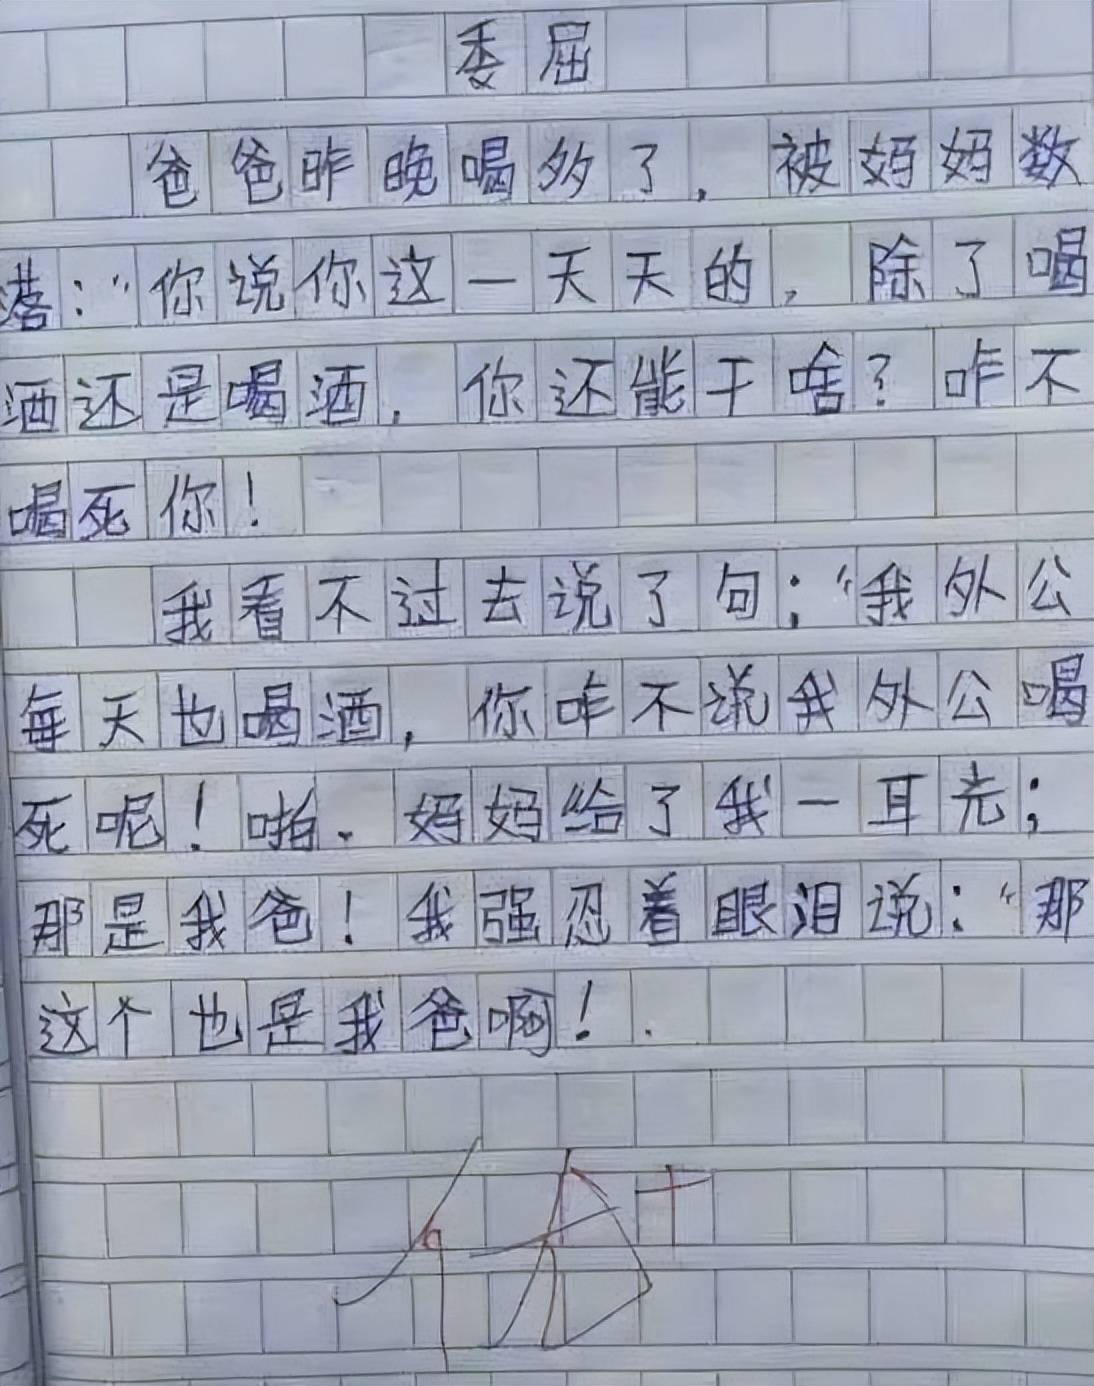 委屈
爸爸昨晚喝多了，被妈妈数
落："你说你这一天天的，除了喝
酒还是喝酒，你还能干啥？咋不
喝死你！
我看不过去说了句："我外公
每天也喝酒，你咋不说我外公喝
死呢！啪．妈妈给了我一耳光；
那是我爸！我强忍着眼泪说："那
这个也是我爸啊！．